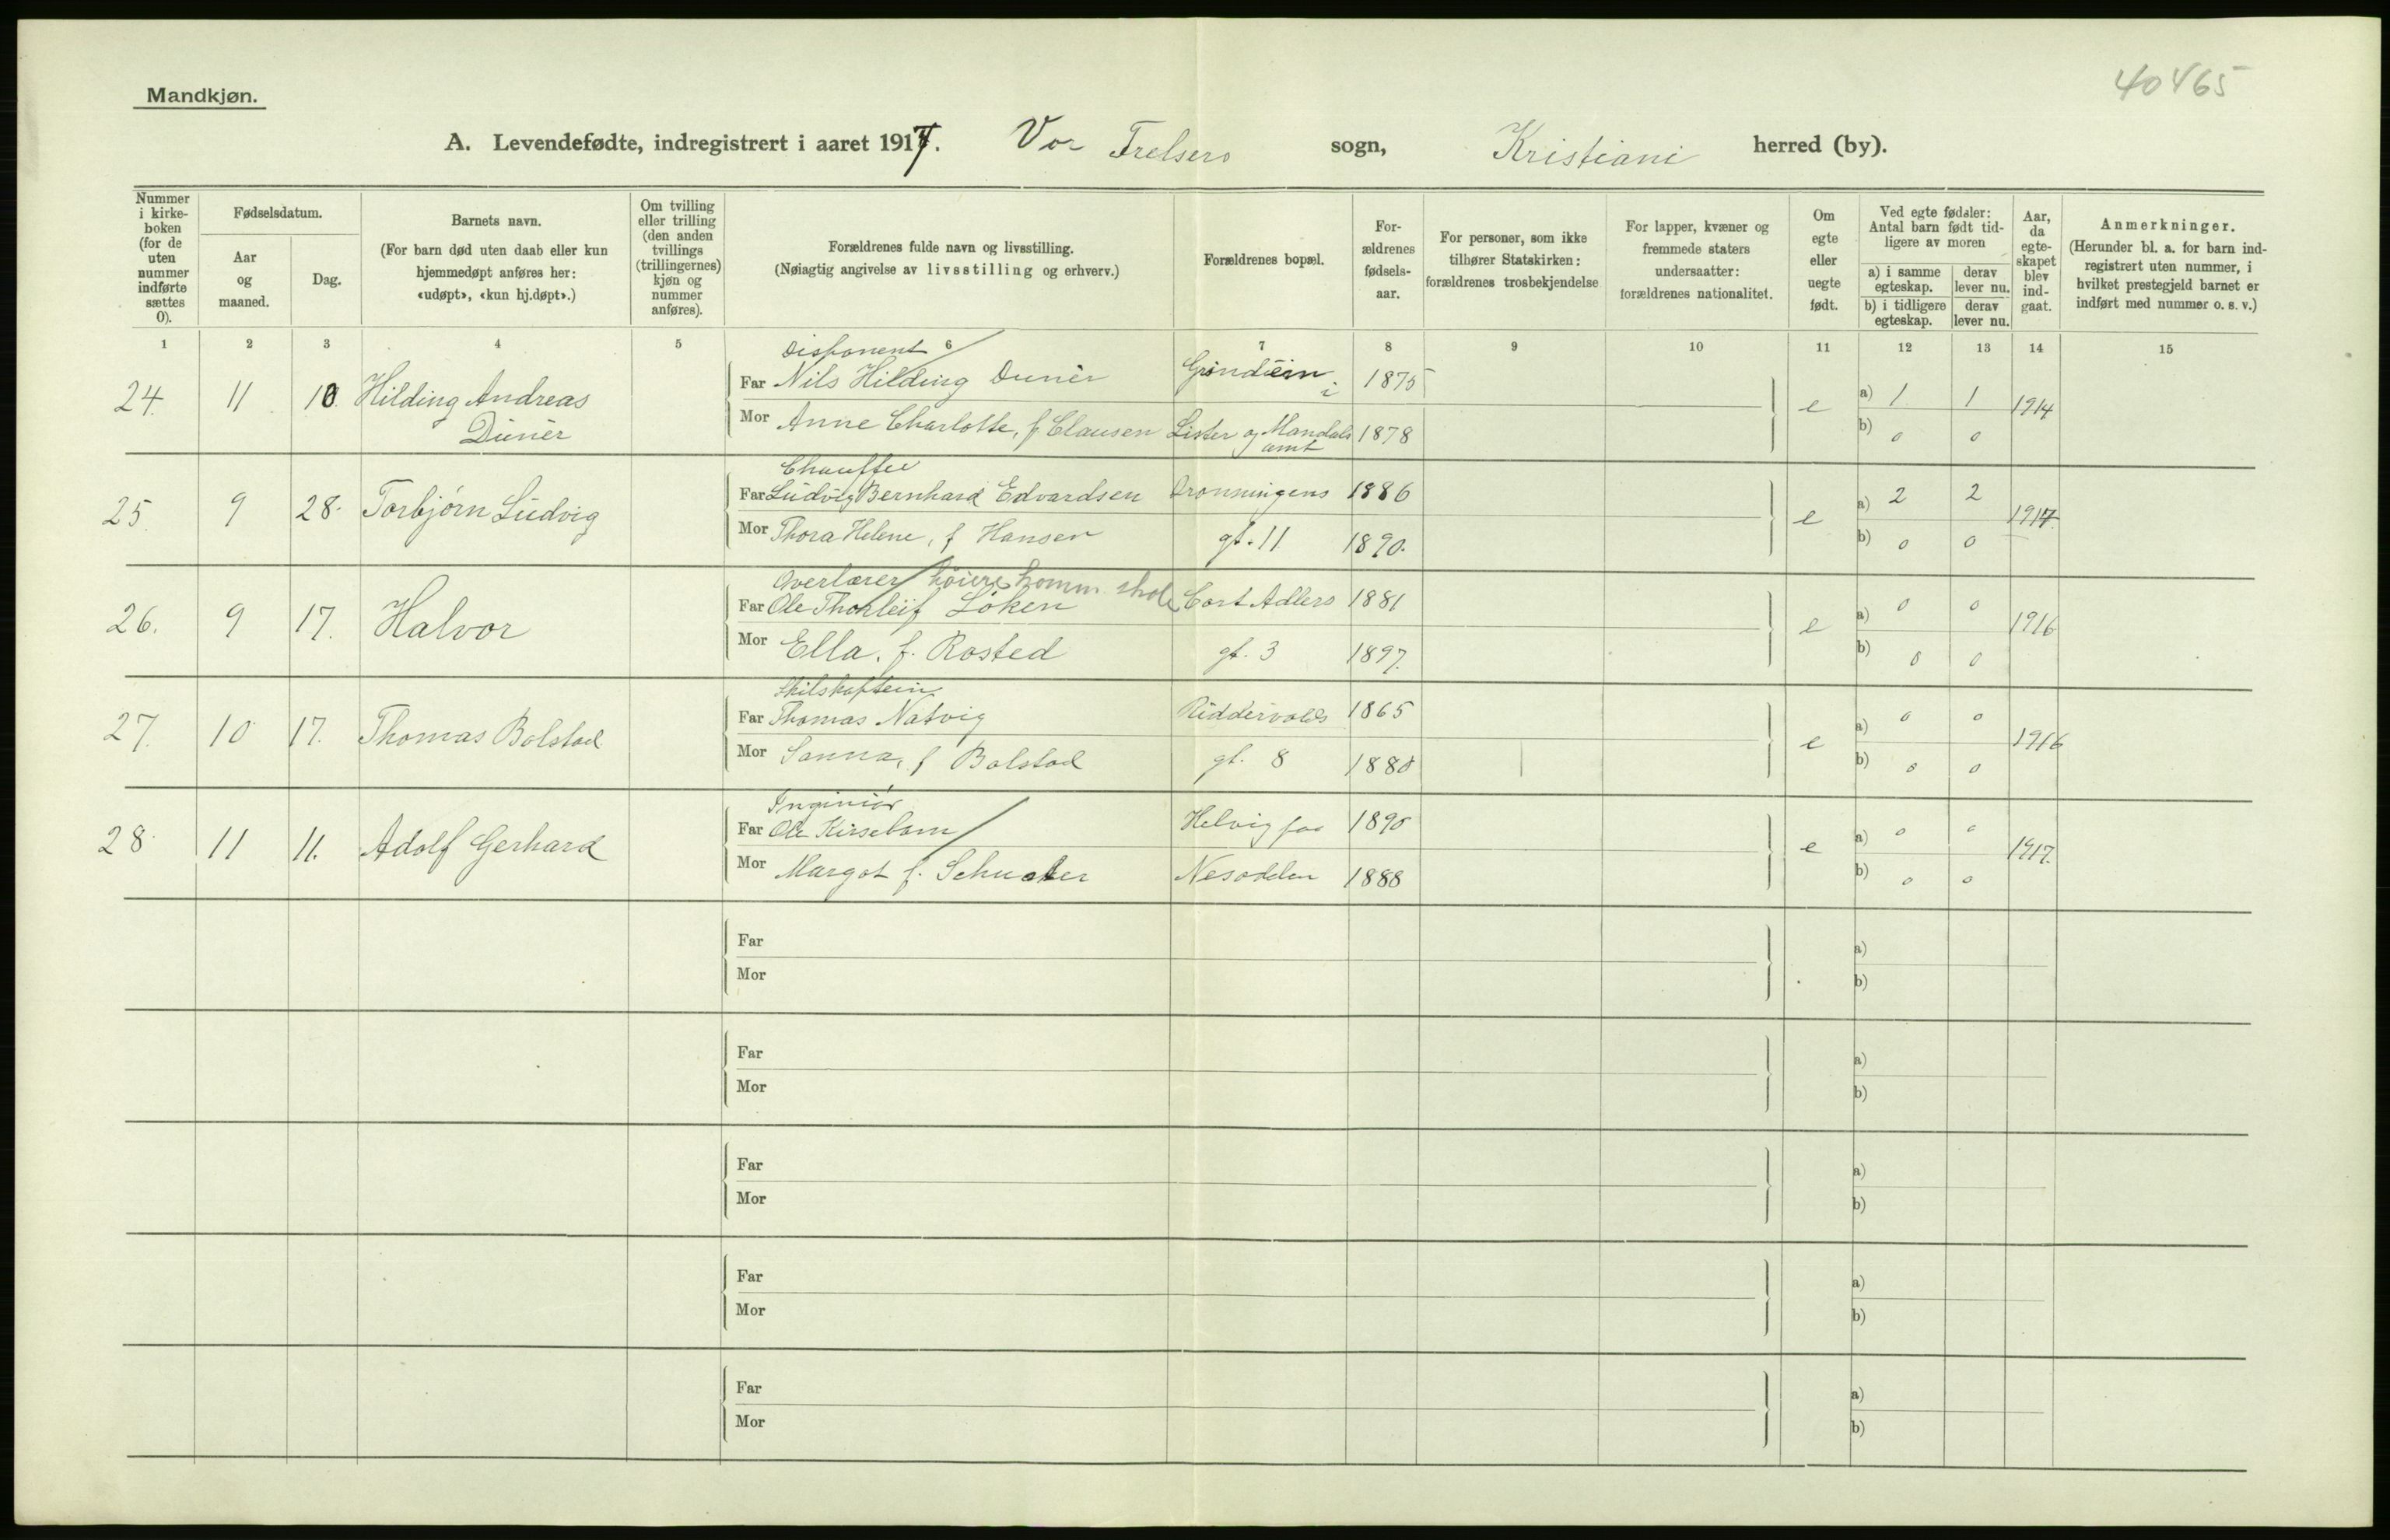 40465
Mandkjøn.
A. Levendefødte, indregistrert i aaret 1917. Vor Frelsers sogn, Kristiani herred (by).
Nummer i kirkeboken (for de uten nummer indførte sættes 0).
Fødselsdatum.
Aar og maaned.
Dag.
Barnets navn.
(For barn død uten daab eller kun hjemmedøpt anføres her: «udøpt», «kun hj.døpt».)
Om tvilling eller trilling (den anden tvillings (trillingernes) kjøn og nummer anføres).
Forældrenes fulde navn og livsstilling.
(Nøiagtig angivelse av livsstilling og erhverv.)
Forældrenes bopæl.
Forældrenes fødselsaar.
For personer, som ikke tilhører Statskirken: forældrenes trosbekjendelse
For lapper, kvæner og fremmede staters undersaatter: forældrenes nationalitet.
Om egte eller uegte født.
Ved egte fødsler: Antal barn født tidligere av moren
a) i samme egteskap. derav lever nu.
b) i tidligere egteskap. derav lever nu.
Aar, da egteskapet blev indgaat.
Anmerkninger.
(Herunder bl. a. for barn indregistrert uten nummer, i hvilket prestegjeld barnet er indført med nummer o. s. v.)
1 2 3 4 5 6 7 8 9 10 11 12 13 14 15
Disponent
24. 11 10 Hilding Andreas Far Nils Hilding Dunèr 1875 e a) 1 1 1914
Dunèr Mor Anne Charlotte, f. Clausen Lister og Mandals amt 1878 b) 0 0
25. 9 28. Torbjørn Ludvig Far Ludvig Bernhard Edvardsen Dronningens 1886 e a) 2 2
Mor Thora Helene, f Hansen gt. 11 1890. b) 0 0
Overlærer høiere komm. skole
26. 9 17. Halvor Far Ole Thorleif Löken Cort Adlers 1881 e a) 0 0 1916
Mor Ella, f. Rosted gt. 3 1897. b) 0 0
27. 10 17. Thomas Bolstad Far Thomas Natvig Riddervolds 1865 e a) 0 0 1916
Mor Sanna, f Bolstad gt. 8 1880 b) 0 0
Inginiör
28. 11 11. Adolf Gerhard Far Ole Kirsebom Helvig paa 1890 e a) 0 0 1917.
Mor Margot f. Nesodden 1888 b) 0 0
Far a)
Mor b)
Far a)
Mor b)
Far a)
Mor b)
Far a)
Mor b)
Far a)
Mor b)